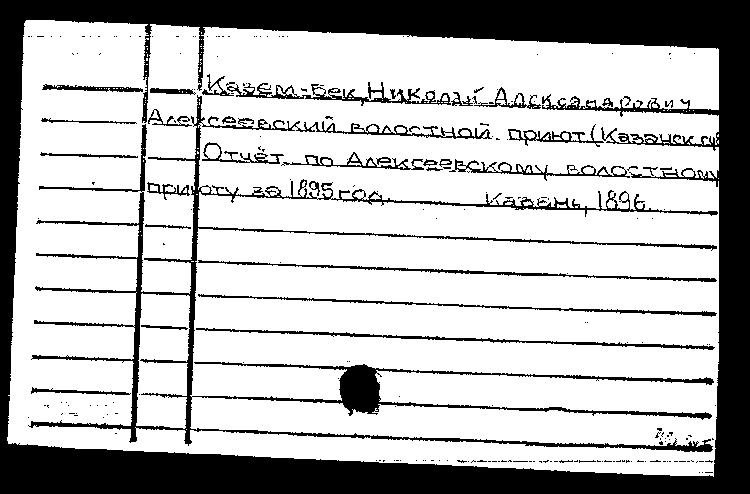 Казем-Бек, Николай Александрович
Алексеевский волостной приют (Казанск. губ
Отчёт по Алексеевскому волостному
приюту за 1895 год. Казань, 1896.